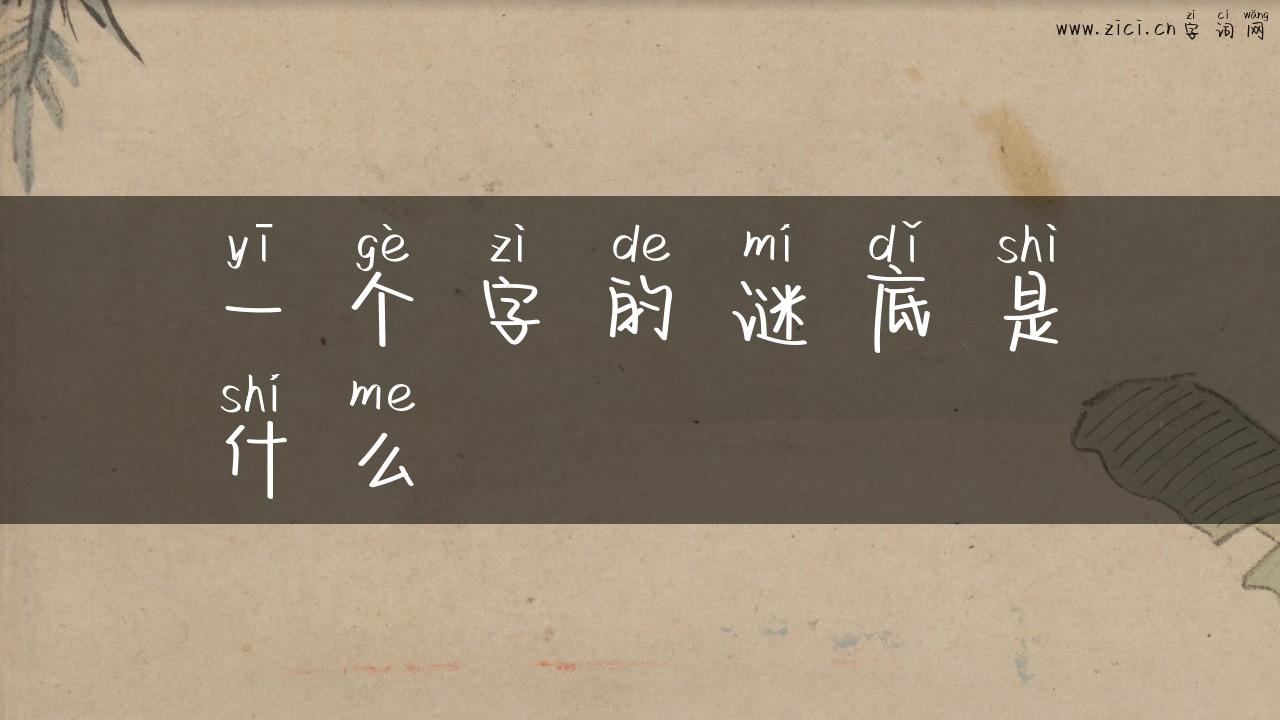 zì cí wǎng
www.zici.cn 字词网
yī gè zì de mí dǐ shì
一个字的谜底是
shí me
什么